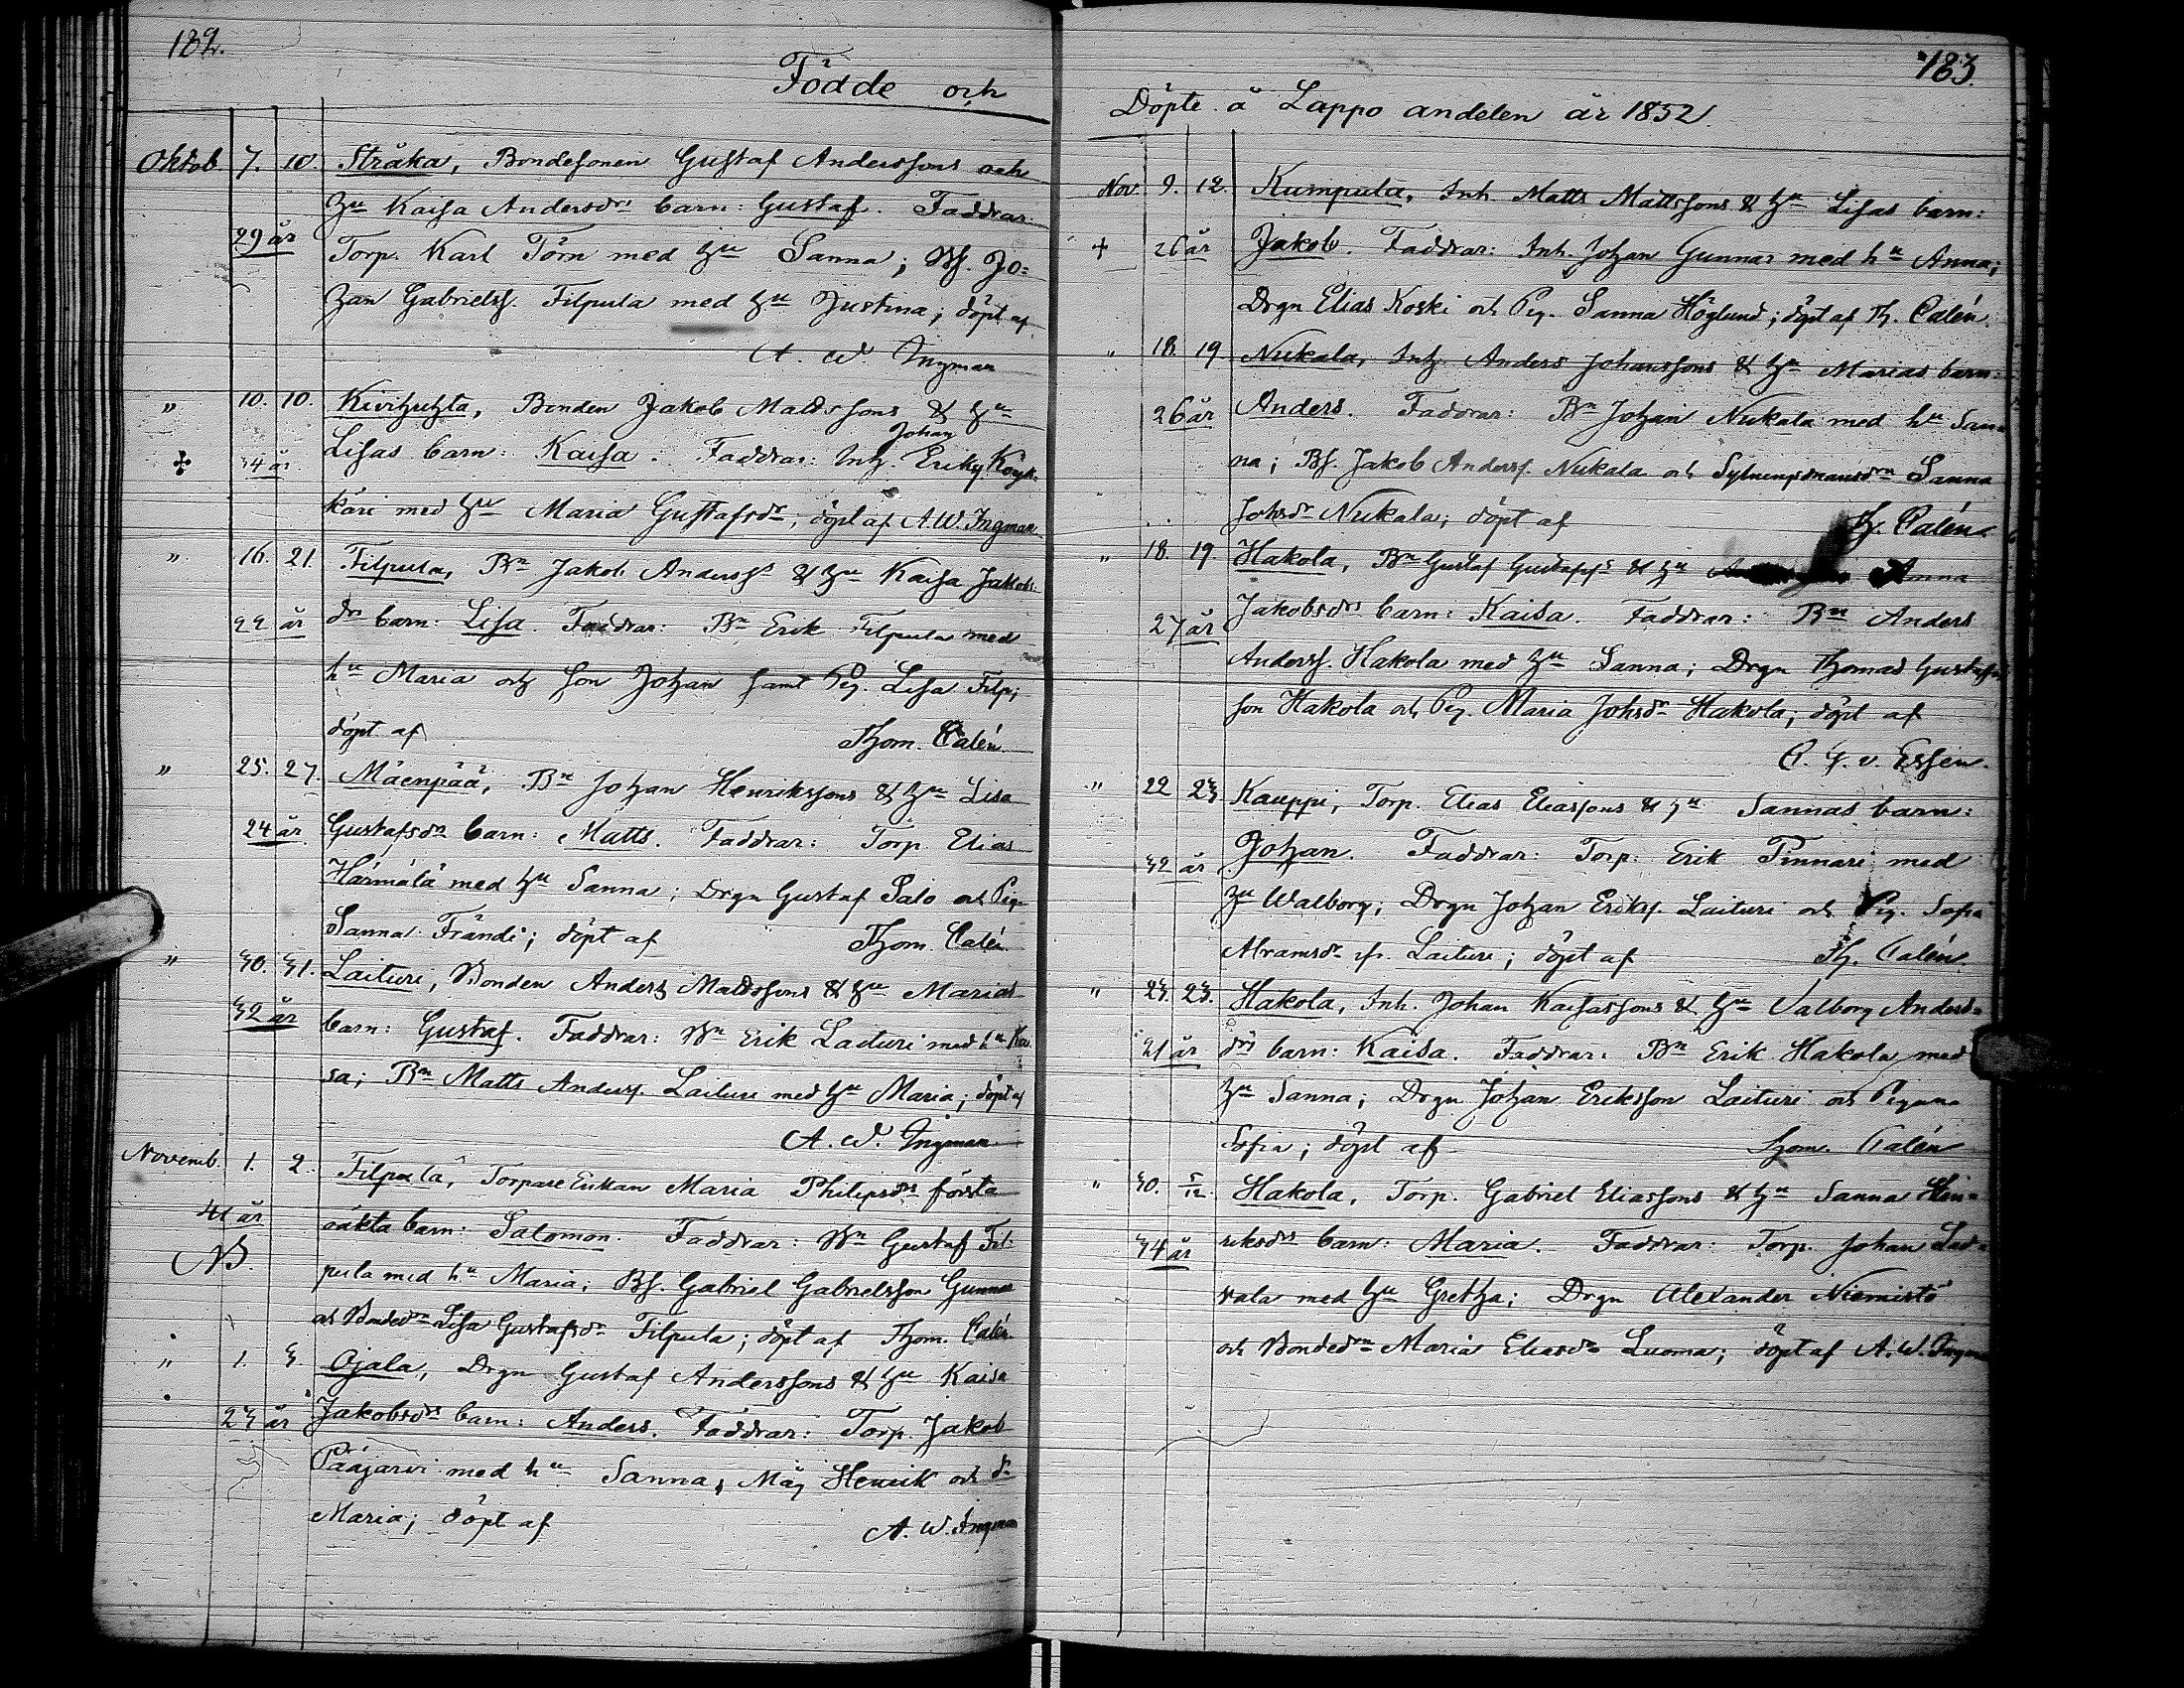 182.
Födde och
Oktob. 7. 10. Stråka, Bondesonen Gustaf Anderssons och
hu Kaisa Andersdrs barn: Gustaf. Faddrar:
29 år Torp. Karl Törn med hu Sanna; Bs. Jo-
han Gabrielss. Filpula med hu Justina; döpt af
A. W. Ingman
" 10. 10. Kivihuhta, Bonden Jakob Mattssons & hu
Johan
+ 34 år Lisas barn: Kaisa. Faddrar: Inh. Eriks. Koyk-
käri med hu Maria Gustafsdr; döpt af A.W. Ingman
" 16. 21. Filpula, Bn Jakob Anderss & hu Kaisa Jakobs-
22 år dr barn: Lisa. Faddrar: Bn Erik Filpula med
hu Maria och son Johan samt Pig. Lisa Filp;
döpt af Thom. Calén.
" 25. 27. Mäenpää, Bn Johan Henrikssons & hu Lisa
24 år Gustafsdrs barn: Matts. Faddrar: Torp. Elias
Härmälä med hu Sanna; Drgn Gustaf Salo och Pig.
Sanna Frändi; döpt af Thom. Calén.
" 30. 31. Laituri, Bonden Anders Mattssons & hu Marias
32 år barn: Gustaf. Faddrar: Bn Erik Laituri med hu Kai-
sa; Bn Matts Anderss. Laituri med hu Maria; döpt af
A. W. Ingman
Novemb. 1. 2. Filpula, Torpare Enkan Maria Philipsdrs första
41 år oäkta barn: Salomon. Faddrar: Bn Gustaf Fil-
NB. pula med hu Maria; Bs. Gabriel Gabrielsson Gunnar
och Bondedn Lisa Gustafsdr Filpula; döpt af Thom. Calén
" 1. 3. Ojala, Drgn Gustaf Anderssons & hu Kaisa
23 år Jakobsdrs barn: Anders. Faddrar: Torp. Jakob
Pääjärvi med hu Sanna, Måg Henrik och dr
Maria; döpt af A. W. Ingman
183.
Döpte å Lappo andelen år 1852
Nov. 9. 12. Kumpula, Inh. Matts Mattssons & hu Lisas barn:
+ 26 år Jakob. Faddrar: Inh. Johan Gunnar med hu Anna;
Drgn Elias Koski och Pig. Sanna Höglund; döpt af Th. Calén.
" 18. 19. Nukala, Inh. Anders Johanssons & hu Marias barn:
26 år Anders. Faddrar: Bn Johan Nukala med hu San-
na; Bs. Jakob Anderss. Nukala och Sanna
Johsdr Nukala; döpt af Th. Calén.
" 18. 19. Hakola, Bn Gustaf Gustafss & hu Anna
27 år Jakobsdrs barn: Kaisa. Faddrar: Bn Anders
Anderss. Hakola med hu Sanna; Drgn Thomas Gustafs-
son Hakola och Pig. Maria Johsdr Hakola; döpt af
C. G. v. Essen.
" 22 23 Kauppi, Torp. Elias Eliassons & hu Sannas barn:
32 år Johan. Faddrar: Torp. Erik Pinnari med
hu Walborg; Drgn Johan Eriks. Laituri och Pig. Sofia
Abramsdr fr. Laituri; döpt af Th. Calén.
" 23. 23. Hakola, Inh. Johan Kaisassons & hu Valborg Anders-
21 år drs barn: Kaisa. Faddrar: Bn Erik Hakola med
hu Sanna; Drgn Johan Eriksson Laituri och Pigan
Sofia; döpt af Thom. Calén
" 30. 5/12. Hakola, Torp. Gabriel Eliassons & hu Sanna Hen-
34 år riksdrs barn: Maria. Faddrar: Torp. Johan Lad-
vala med hu Gretha; Drgn Alexander Niemistö
och Bondedn Maria Eliasdr Luoma; döpt af A. W. Ingman